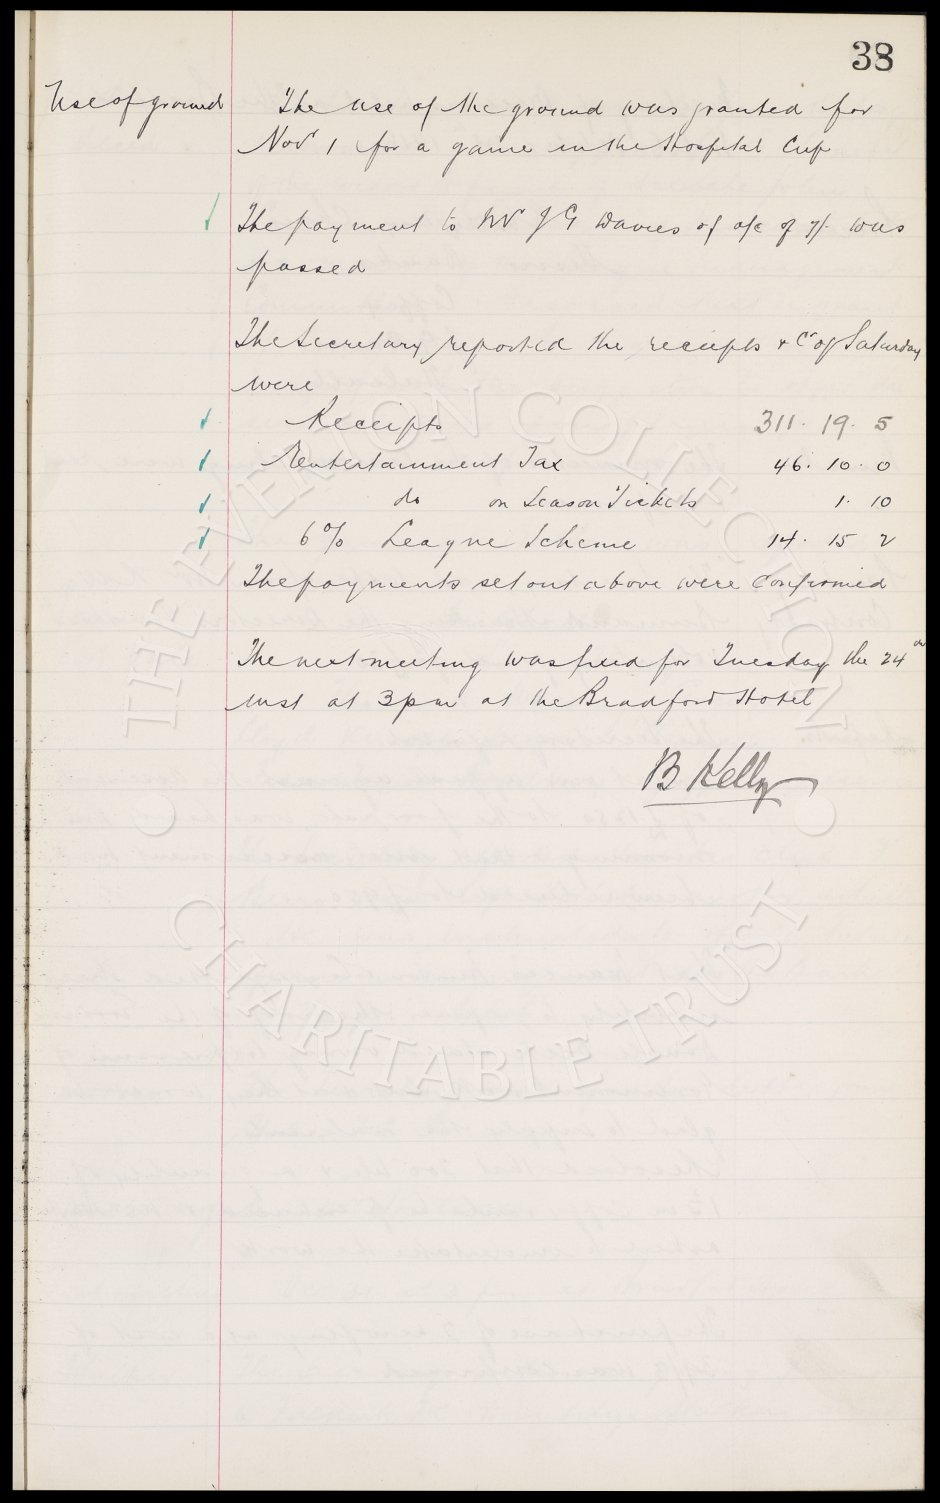 38
Use of ground
The use of the ground was granted for
Novr 1 for a game in the Hospital Cup
The payment to Mr J G Davies of a/c of 7/- was
passed
The Secretary reported the receipts & Co of Saturday
were
Receipts 311. 19. 5
Entertainment Tax 46. 10. 0
do on Season Tickets 1. 10
6% League Scheme 14. 15 2
The payments set out above were Confirmed
The next meeting was fixed for Tuesday the 24th
inst at 3pm at the Bradford Hotel
B Kelly
THE EVERTON COLLECTION
CHARITABLE TRUST